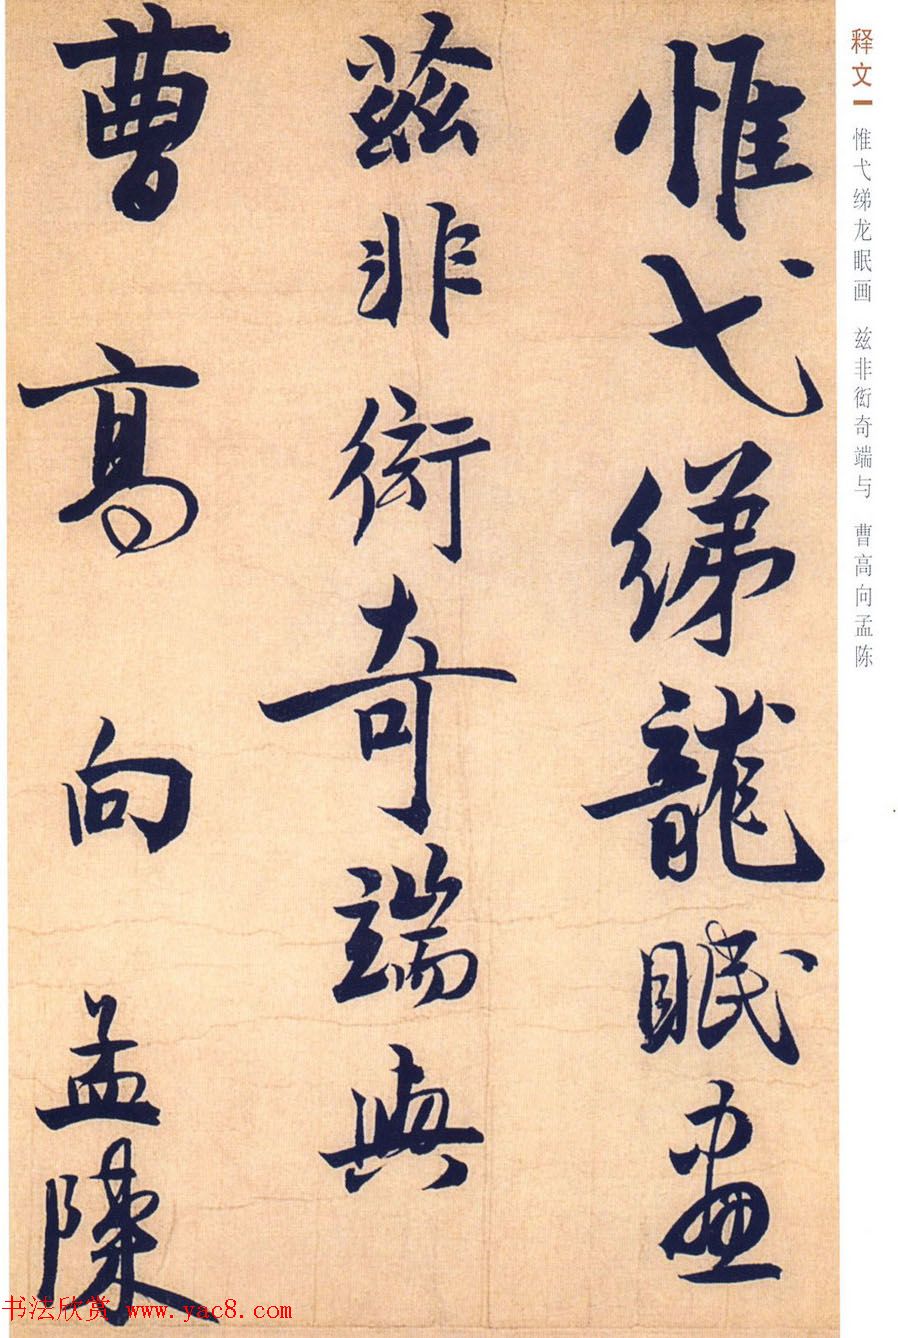 惟弋綈龍眠畫
茲非衒奇端與
曹高向孟陳
释文
惟弋绨龙眠画 兹非衒奇端与 曹高向孟陈
书法欣赏 www.yac8.com